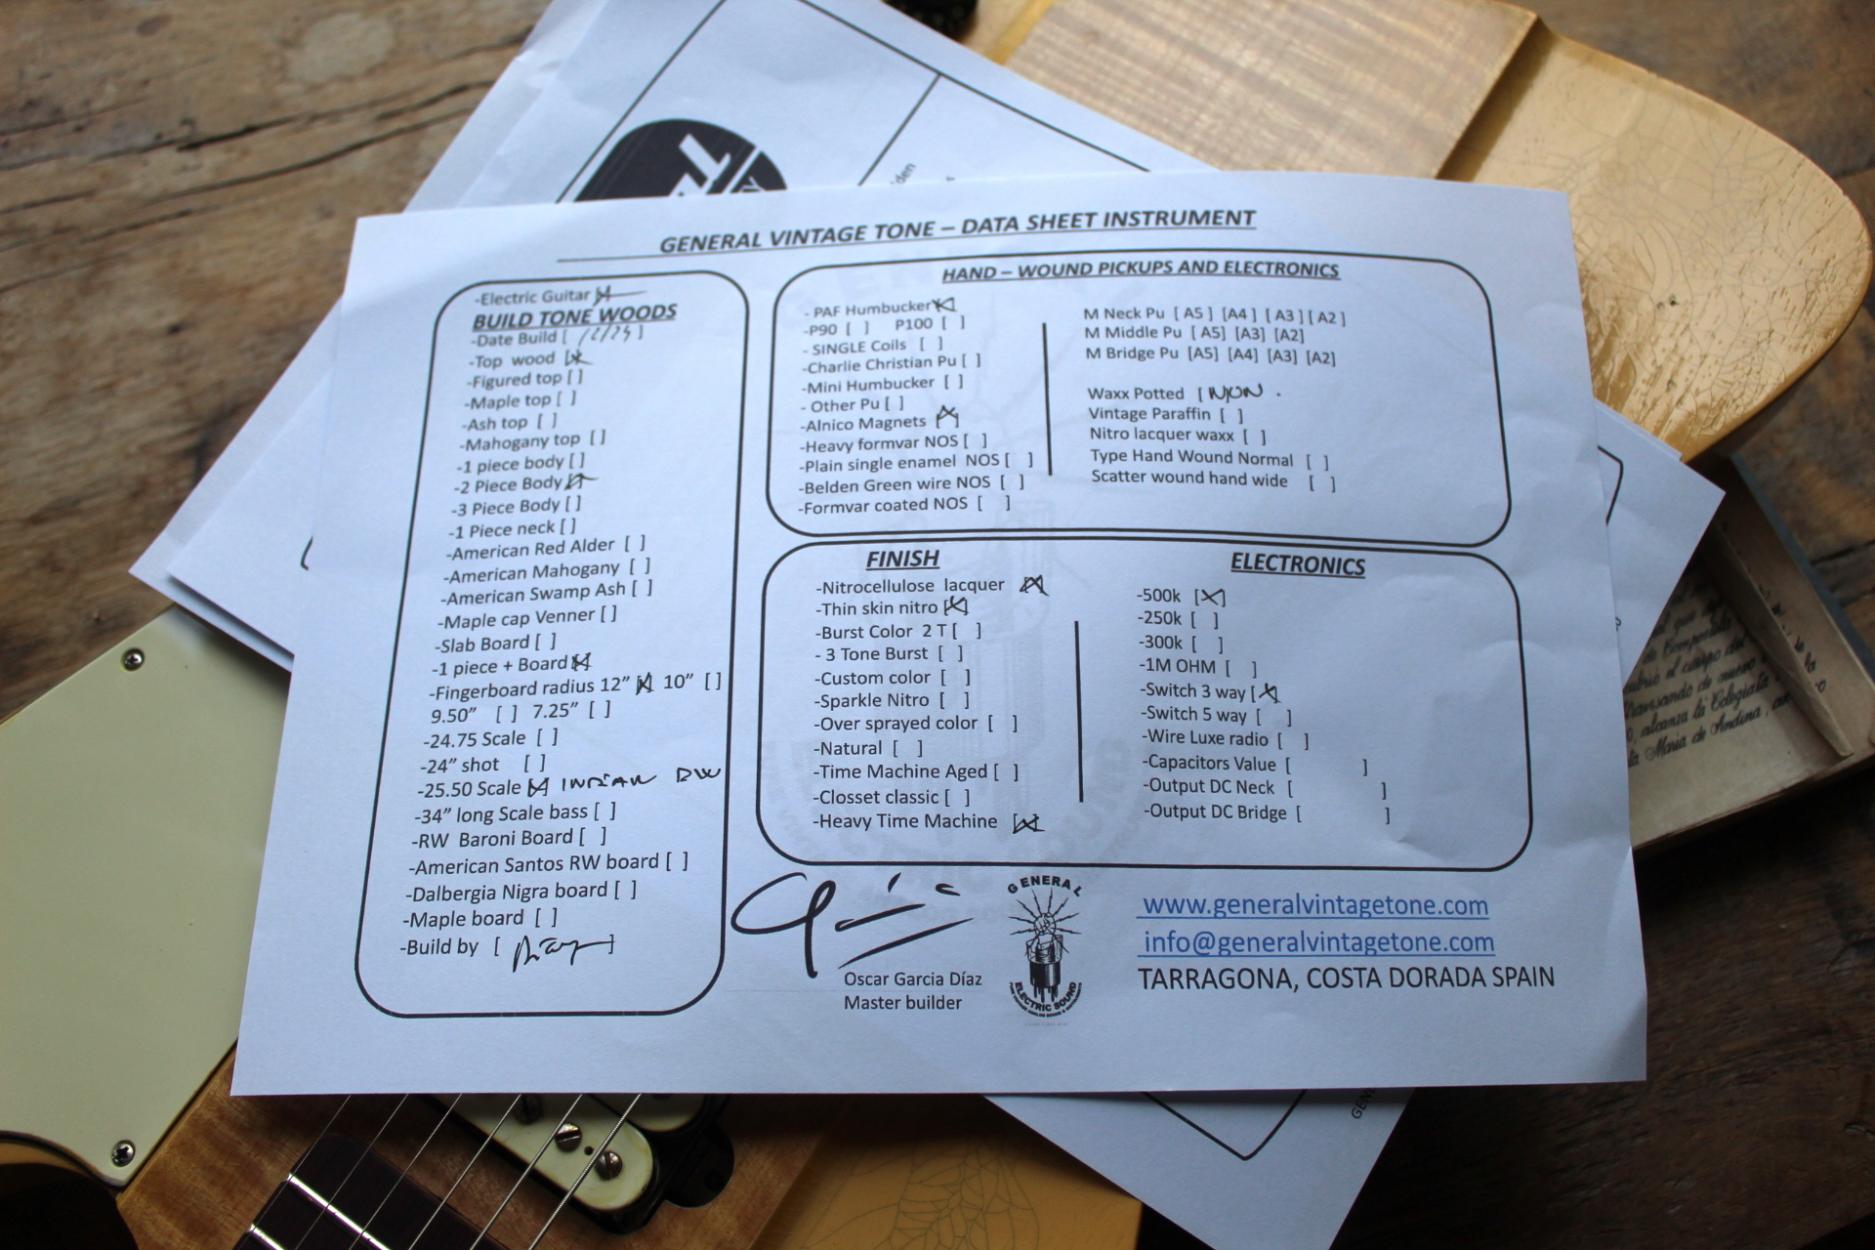 GENERAL VINTAGE TONE – DATA SHEET INSTRUMENT
-Electric Guitar
BUILD TONE WOODS
-Date Build [ 12/24 ]
-Top wood [x]
-Figured top [ ]
-Maple top [ ]
-Ash top [ ]
-Mahogany top [ ]
-1 piece body [ ]
-2 Piece Body [x]
-3 Piece Body [ ]
-1 Piece neck [ ]
-American Red Alder [ ]
-American Mahogany [ ]
-American Swamp Ash [ ]
-Maple cap Venner [ ]
-Slab Board [ ]
-1 piece + Board [x]
-Fingerboard radius 12" [x] 10" [ ]
9.50" [ ] 7.25" [ ]
-24.75 Scale [ ]
-24" shot [ ]
-25.50 Scale [x] INDIAN
-34" long Scale bass [ ]
-RW Baroni Board [ ]
-American Santos RW board [ ]
-Dalbergia Nigra board [ ]
-Maple board [ ]
-Build by [ ]
HAND – WOUND PICKUPS AND ELECTRONICS
- PAF Humbucker [x]
-P90 [ ] P100 [ ]
- SINGLE Coils [ ]
-Charlie Christian Pu [ ]
-Mini Humbucker [ ]
- Other Pu [ ]
-Alnico Magnets [x]
-Heavy formvar NOS [ ]
-Plain single enamel NOS [ ]
-Belden Green wire NOS [ ]
-Formvar coated NOS [ ]
M Neck Pu [ A5 ] [A4 ] [ A3 ] [ A2 ]
M Middle Pu [ A5] [A3] [A2]
M Bridge Pu [A5] [A4] [A3] [A2]
Waxx Potted [ NON .
Vintage Paraffin [ ]
Nitro lacquer waxx [ ]
Type Hand Wound Normal [ ]
Scatter wound hand wide [ ]
FINISH
-Nitrocellulose lacquer [x]
-Thin skin nitro [x]
-Burst Color 2 T [ ]
- 3 Tone Burst [ ]
-Custom color [ ]
-Sparkle Nitro [ ]
-Over sprayed color [ ]
-Natural [ ]
-Time Machine Aged [ ]
-Closset classic [ ]
-Heavy Time Machine [x]
ELECTRONICS
-500k [x]
-250k [ ]
-300k [ ]
-1M OHM [ ]
-Switch 3 way [x]
-Switch 5 way [ ]
-Wire Luxe radio [ ]
-Capacitors Value [ ]
-Output DC Neck [ ]
-Output DC Bridge [ ]
Oscar Garcia Díaz
Master builder
GENERAL
ELECTRIC SOUND
www.generalvintagetone.com
info@generalvintagetone.com
TARRAGONA, COSTA DORADA SPAIN